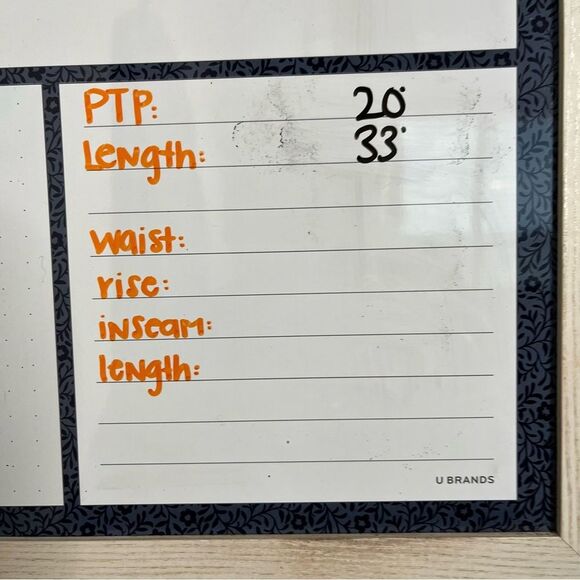 PTP: 20"
Length: 33"
waist:
rise:
inseam:
length:
U BRANDS